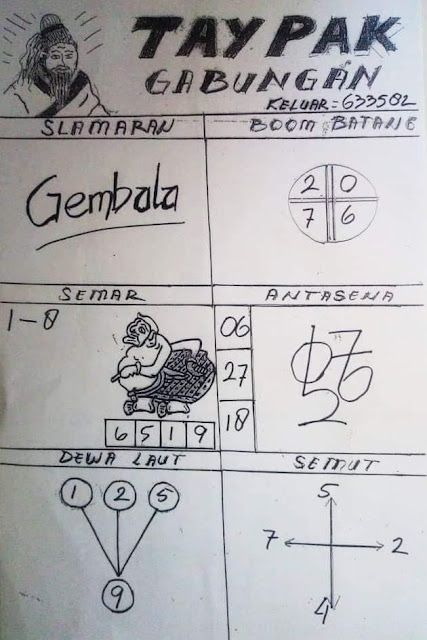 TAY PAK
GABUNGAN
KELUAR = 633582
SLAMARAN
BOOM BATANG
Gembala
2 0
7 6
SEMAR
ANTASENA
1-8
06
27
18
6 5 1 9
DEWA LAUT
SEMUT
1 2 5
9
5
7 2
4